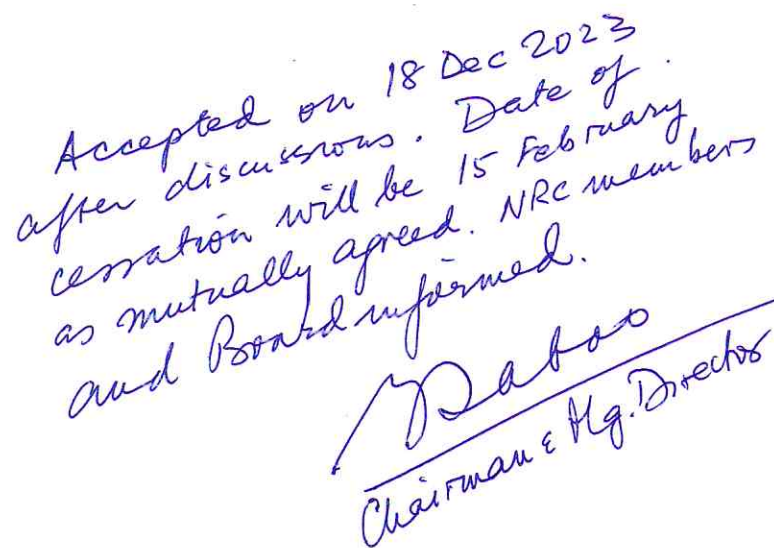 Accepted on 18 Dec 2023
after discussions. Date of
cessation will be 15 February
as mutually agreed. NRC members
and Board informed.
Chairman & Mg. Director